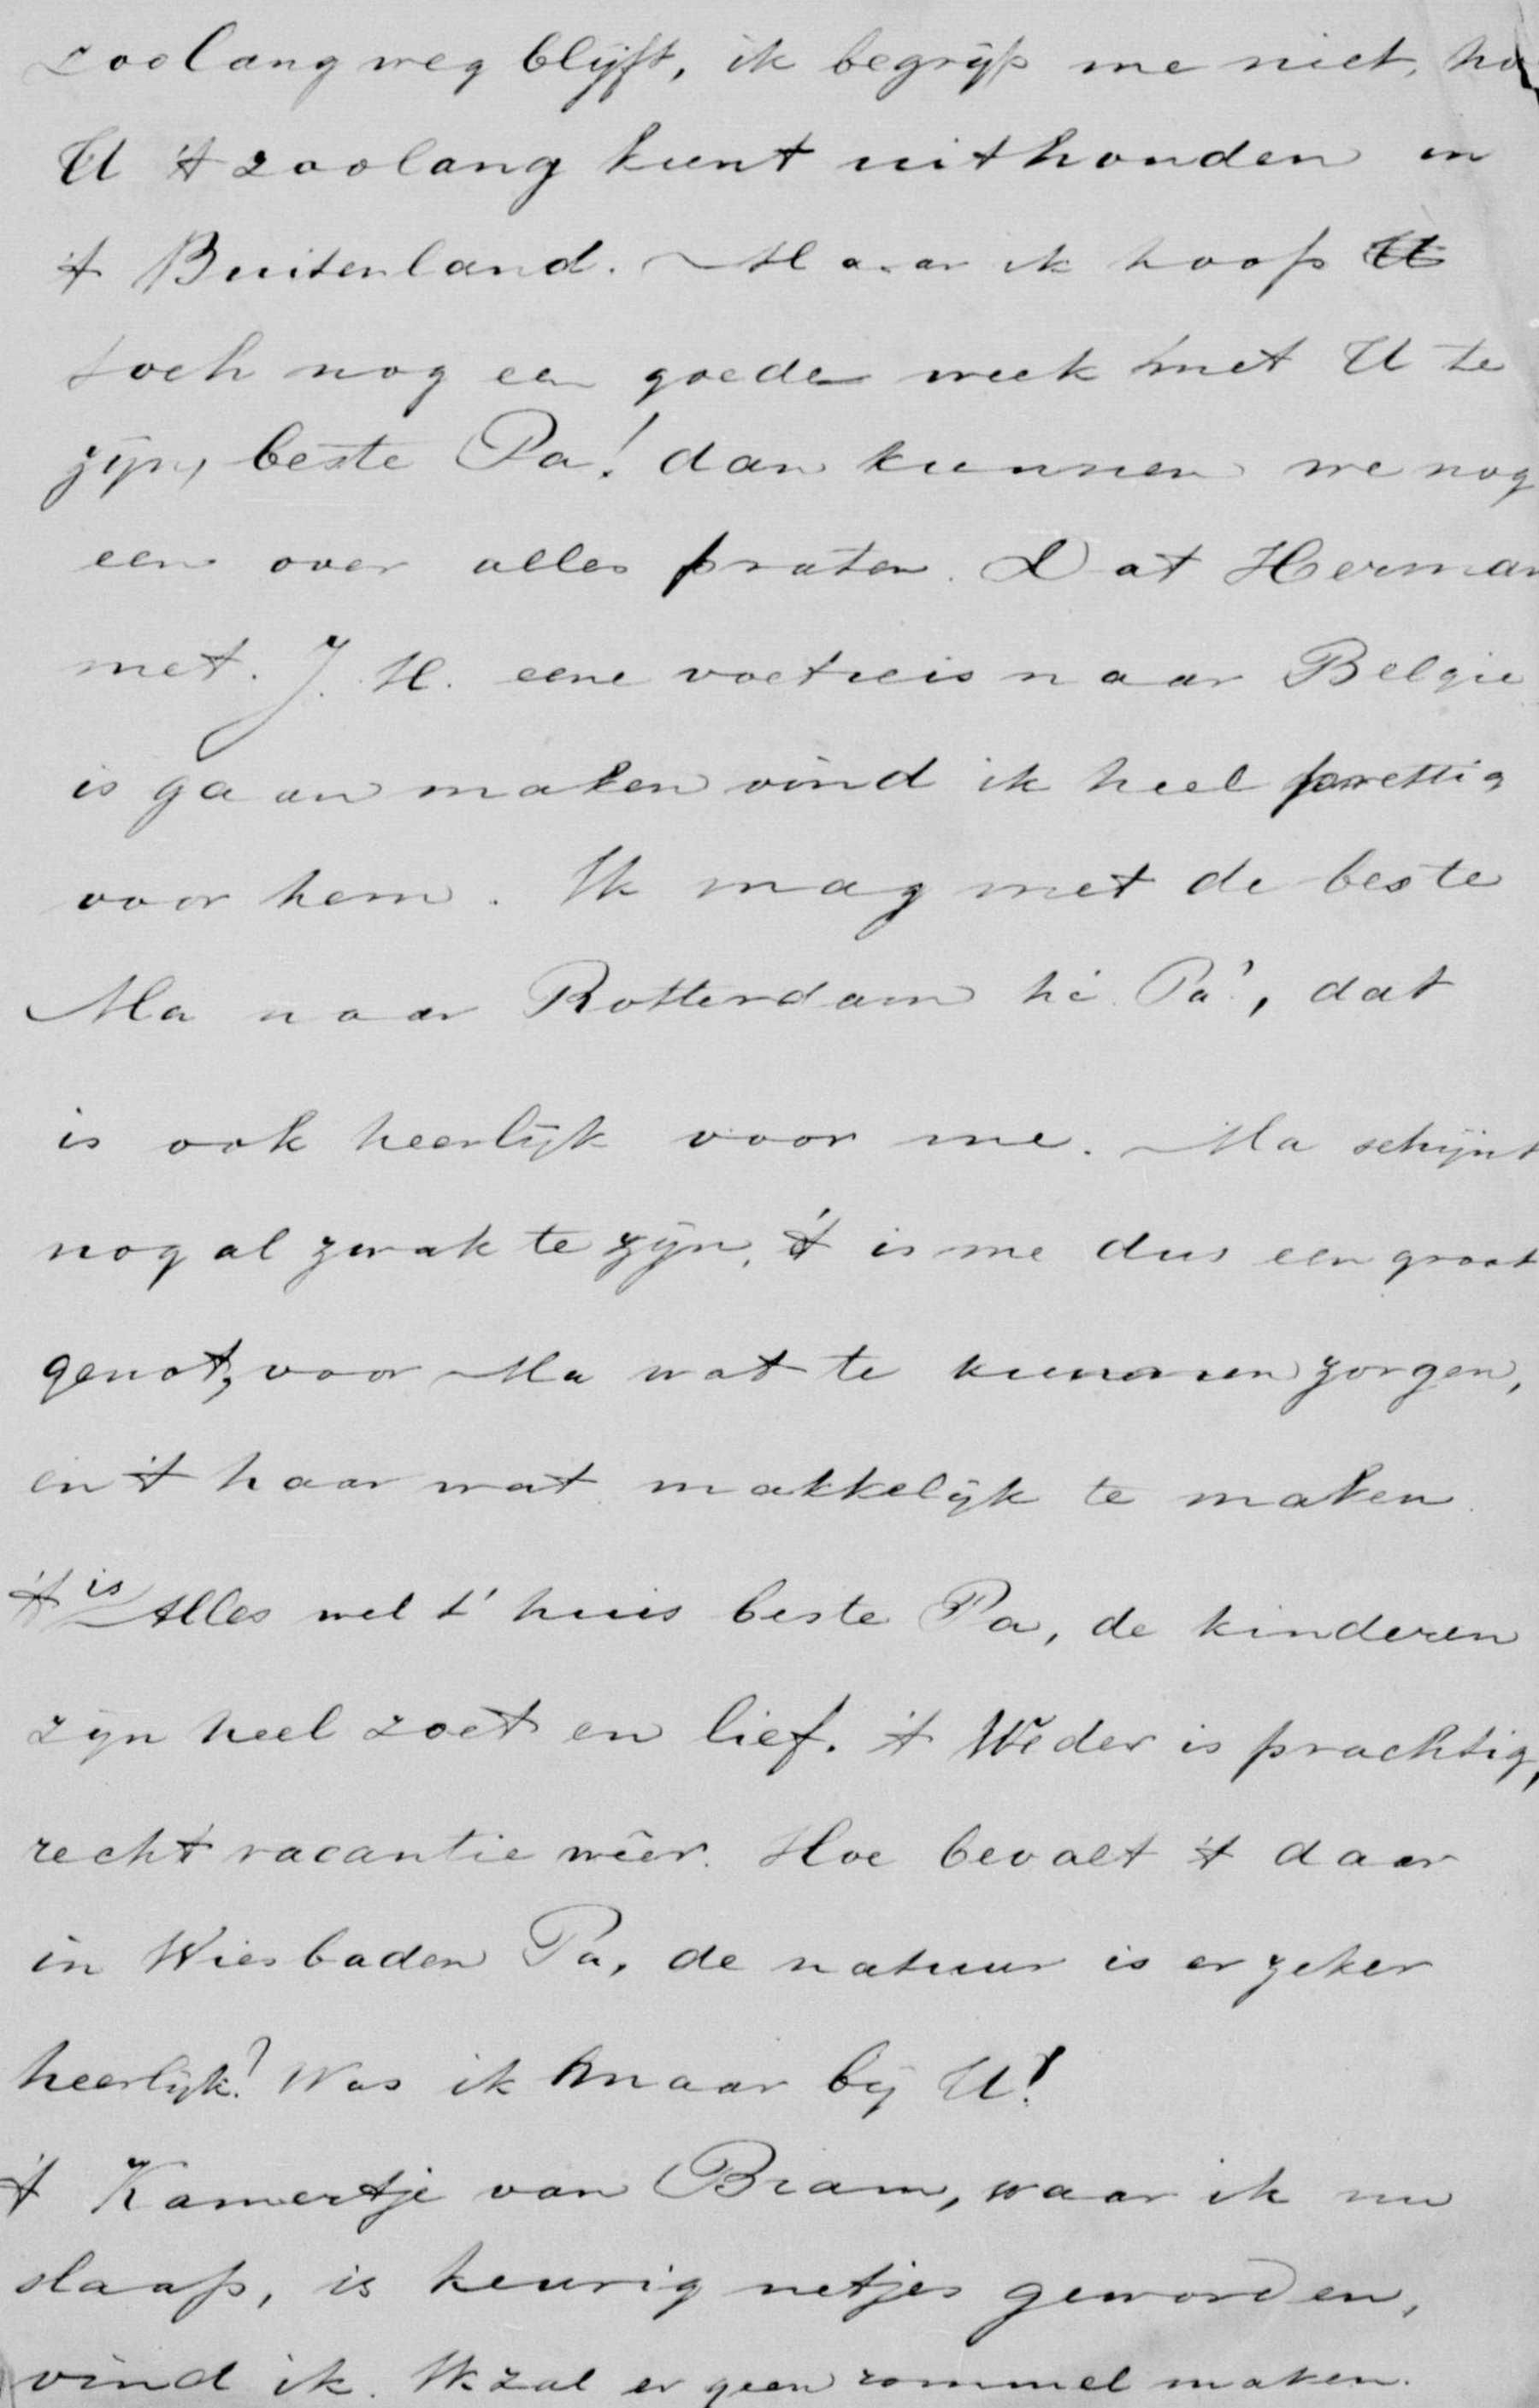 zoolang weg blijft, ik begrijp me niet, ho
U 't zoolang kunt uithouden in
't Buitenland. Maar ik hoop U
toch nog een goede week met U te
zijn, beste Pa! dan kunnen we nog
een over alles praten. Dat Herman
met. J. H. eene voetreis naar Belgie
is gaan maken vind ik heel prettig
voor hem. Ik mag met de beste
Ma naar Rotterdam hè Pa!, dat
is ook heerlijk voor me. Ma schijnt
nog al zwak te zijn, 't is me dus een groot
genot, voor Ma wat te kunnen zorgen,
en 't haar wat makkelijk te maken.
't is Alles wel t' huis beste Pa, de kinderen
zijn heel zoet en lief. 't Weder is prachtig,
recht vacantie wêer. Hoe bevalt 't daar
in Wiesbaden Pa, de natuur is er zeker
heerlijk? Was ik maar bij U!
't Kamertje van Bram, waar ik nu
slaap, is keurig netjes geworden,
vind ik. Ik zal er geen rommel maken.